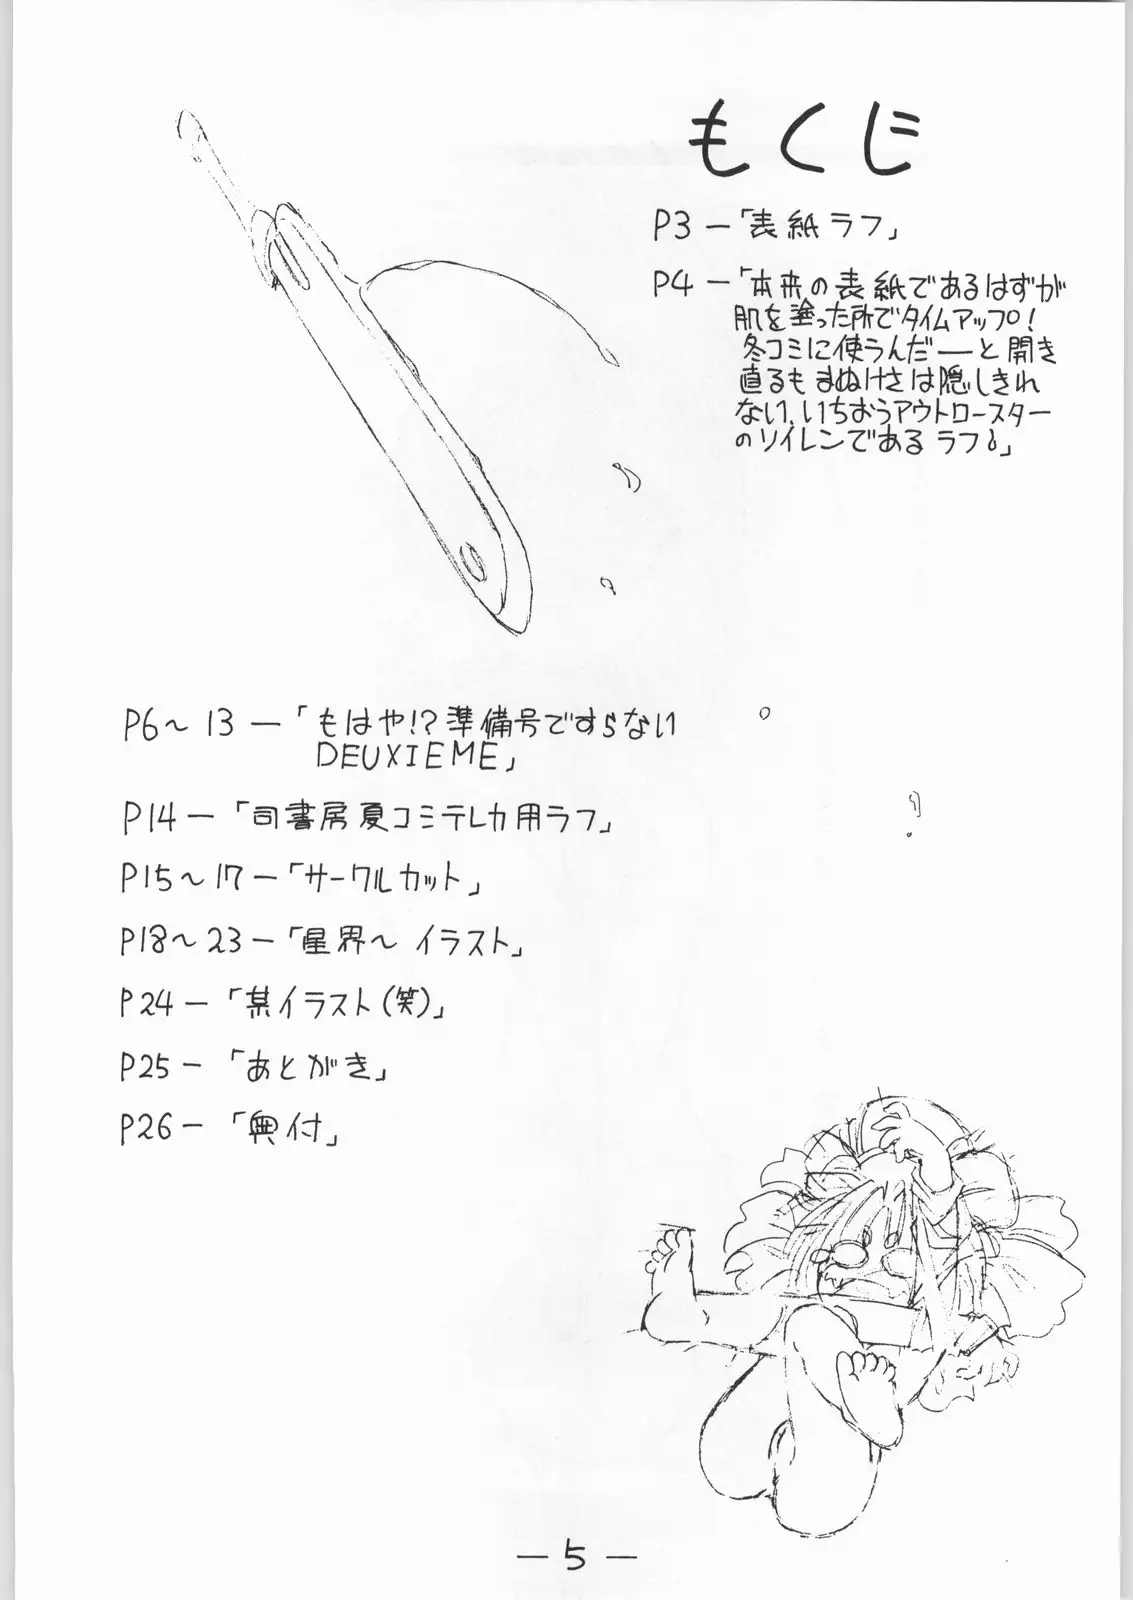 もくじ
P3－「表紙ラフ」
P4－「本来の表紙であるはずが
肌を塗った所でタイムアップ!
冬コミに使うんだ――と開き
直るもまぬけさは隠しきれ
ない、いちおうアウトロースター
のソイレンであるラフ。」
P6～13－「もはや!?準備号ですらない
DEUXIEME」
P14－「司書房夏コミテレカ用ラフ」
P15～17－「サークルカット」
P18～23－「星界～イラスト」
P24－「某イラスト(笑)」
P25－「あとがき」
P26－「奥付」
－5－